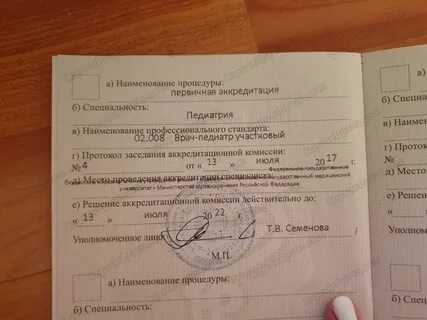 а) Наименование процедуры:
первичная аккредитация
б) Специальность:
Педиатрия
в) Наименование профессионального стандарта:
02.008 Врач-педиатр участковый
г) Протокол заседания аккредитационной комиссии:
№ 4 от « 13 » июля 2017 г.
Федеральное государственное
д) Место проведения аккредитации специалиста:
государственный медицинский
университет Министерства здравоохранения Российской Федерации
е) Решение аккредитационной комиссии действительно до:
« 13 » июля 2022 г.
Уполномоченное лицо / Т.В. Семенова /
М.П.
а) Наименование процедуры:
б) Специальность:
а) Наиме
б) Специаль
в) Наимен
г) Протоко
№
д) Место
е) Решени
«
Уполном